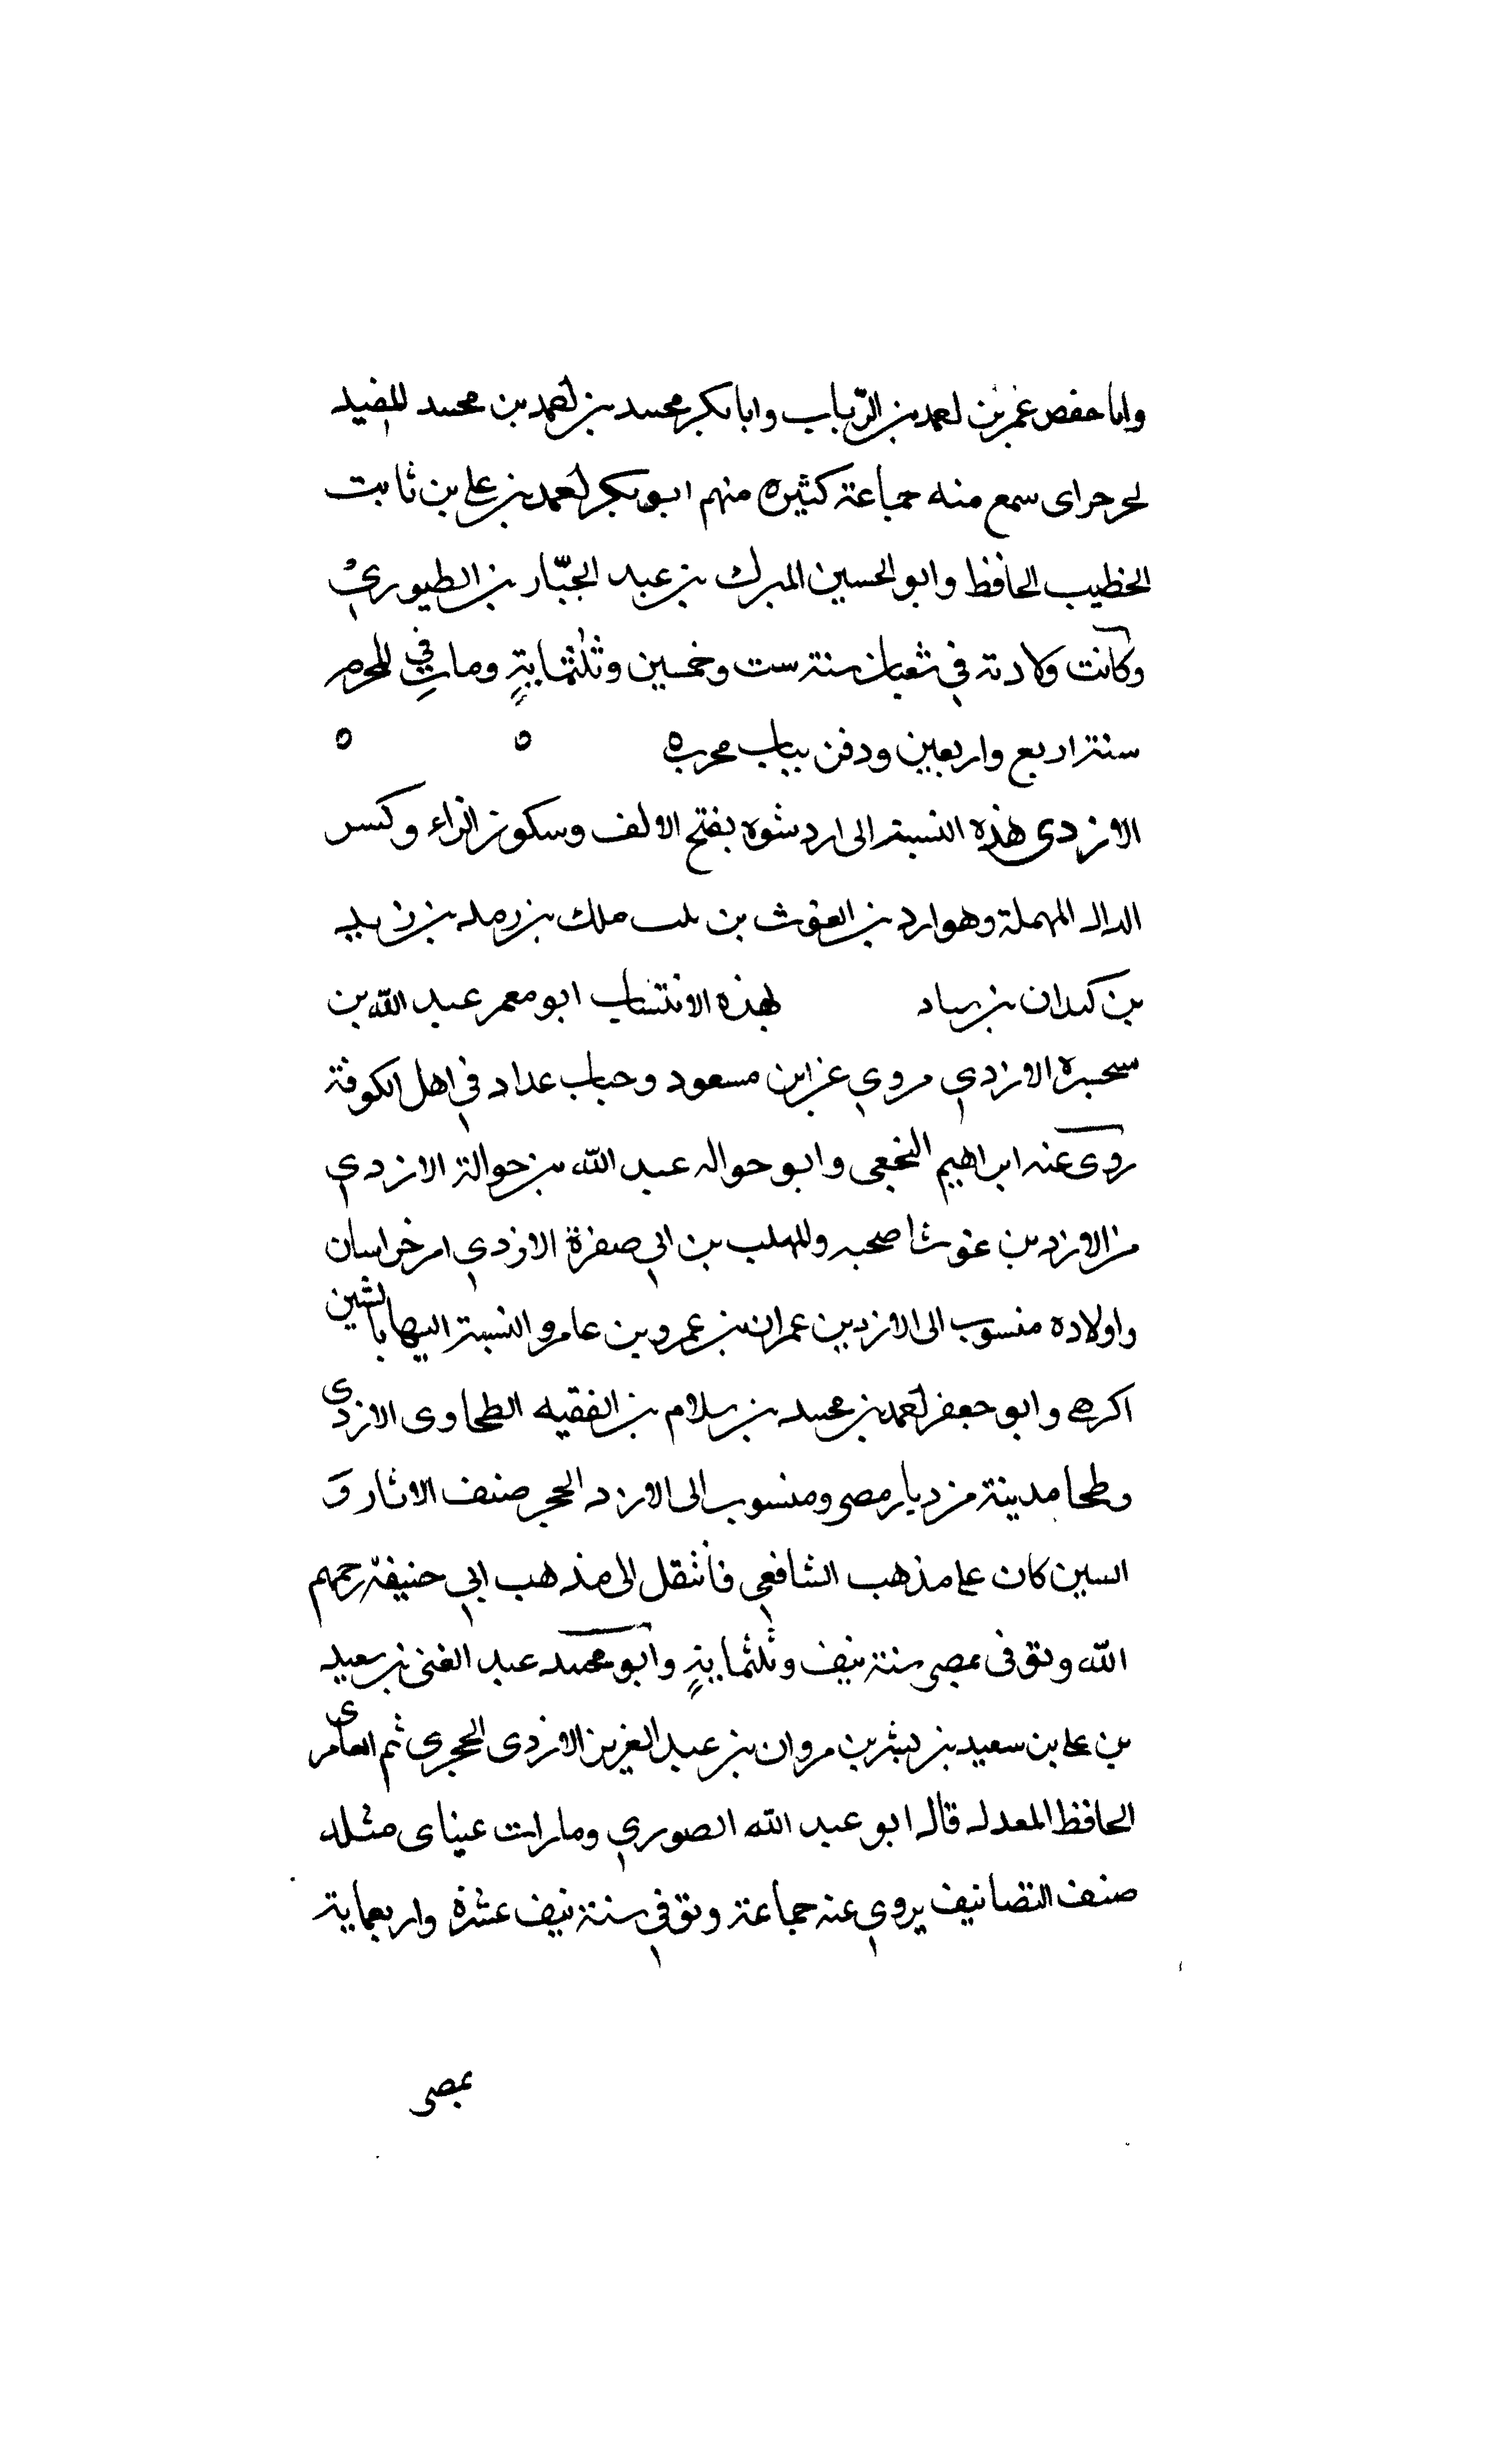 وابا حفص عمر بن احمد بن الزيات وابا بكر محمد بن احمد بن محمد المفيد
الجرجراى سمع منه جماعة كثيره منهم ابو بكر احمد بن على بن ثابت
الخطيب الحافظ وابو الحسين المبرك بن عبد الجبّار بن الطيورى
وكانت ولادته في شعبان سنة ست وخمسين وثلثماية ومات في المحرم
سنة اربع واربعين ودفن بباب محرب ه ه ه
الازدى هذه النسبة الى ارد شنوه بفتح الالف وسكون الزاء وكسر
الدال المهملة وهو ارد بن الغوث بن ملك بن زيد
بن كهلان بن سبا لهذه الانتساب ابو معمر عبد الله بن
سخبره الازدي مروي عن ابن مسعود وخباب عداد في اهل الكوفة
روى عنه ابراهيم النخعى وابو حواله عبد الله بن حوالة الازدي
من الازد بن غوث صحبه والمهلب بن ابي صفرة الازدي امر خراسان
واولاده منسوب الى الازد بن عمران بن عمرو بن عامر والنسبة اليها بالشين
اكر وابو جعفر احمد بن محمد بن سلام بن الفقيه الطحاوى الازدى
وطحا مدينة من ديار مصر ومنسوب الى الازد الحجر صنف الاثار وَ
السين كان على مذهب الشافعي فانتقل الى مذهب ابي حنيفة رحمهم
الله وتوفى بمصر سنة نيف وثلثماية وابو محمد عبد الغنى بن سعيد
بن على بن سعيد بن بشر بن مروان بن عبد العزيز الازدى الحجرى ثم العامرى
الحافظ المعدل قال ابو عبد الله الصوري وما رات عيناى مثله
صنف التصانيف يروي عنه جماعة وتوفي سنة نيف عشرة واربعماية
بمصر